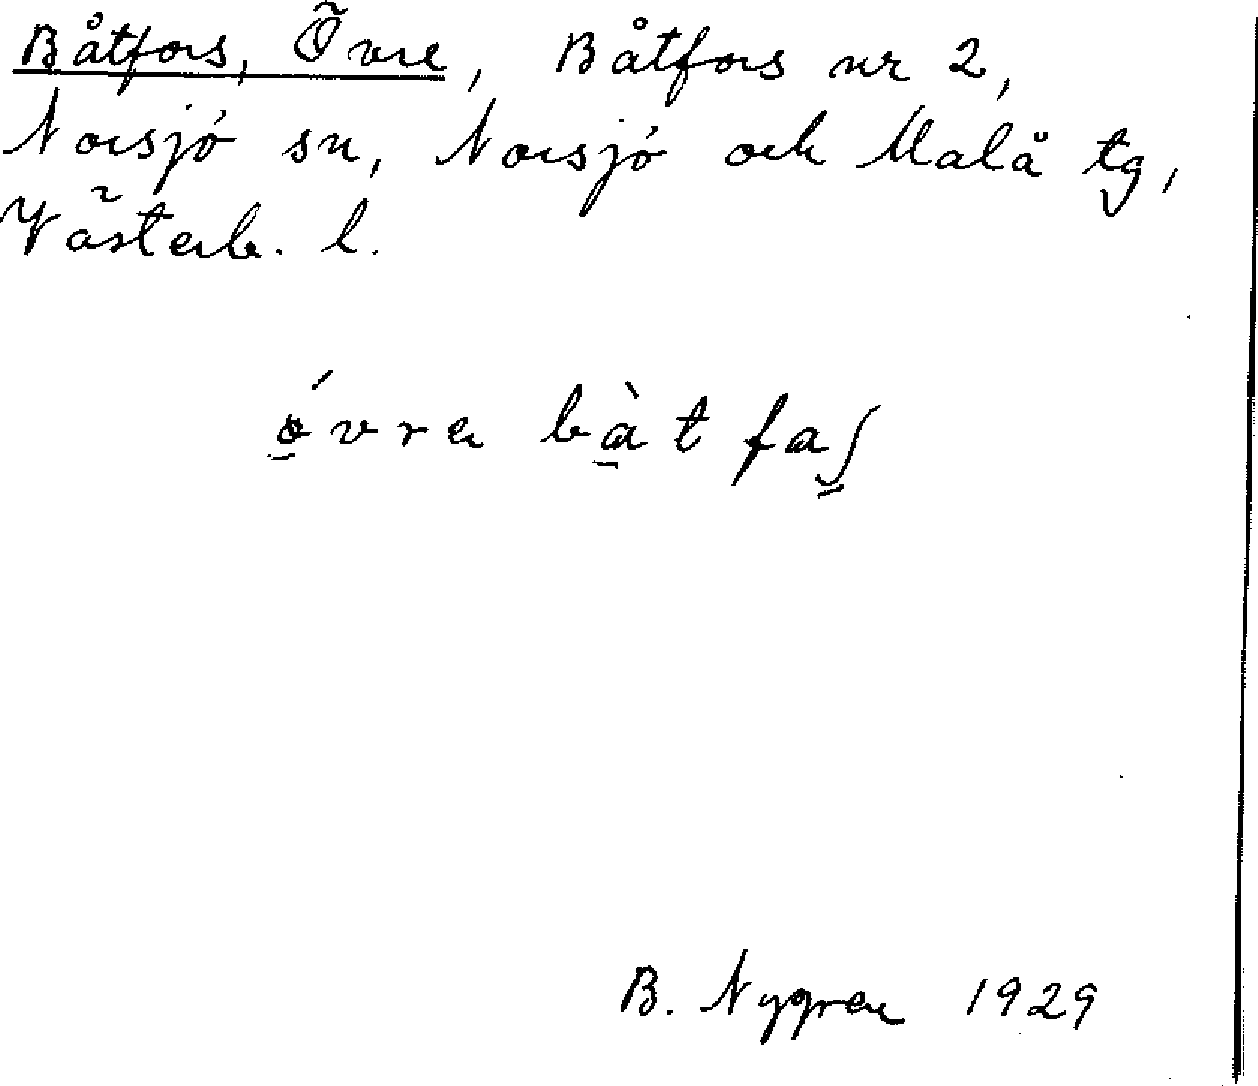 Båtfors, Övre, Båtfors nr 2,
Norsjö sn, Norsjö och Malå tg,
Västerb. l.
ǿ̱vrɐ bà̱tfaʃ̳
B. Nygren 1929